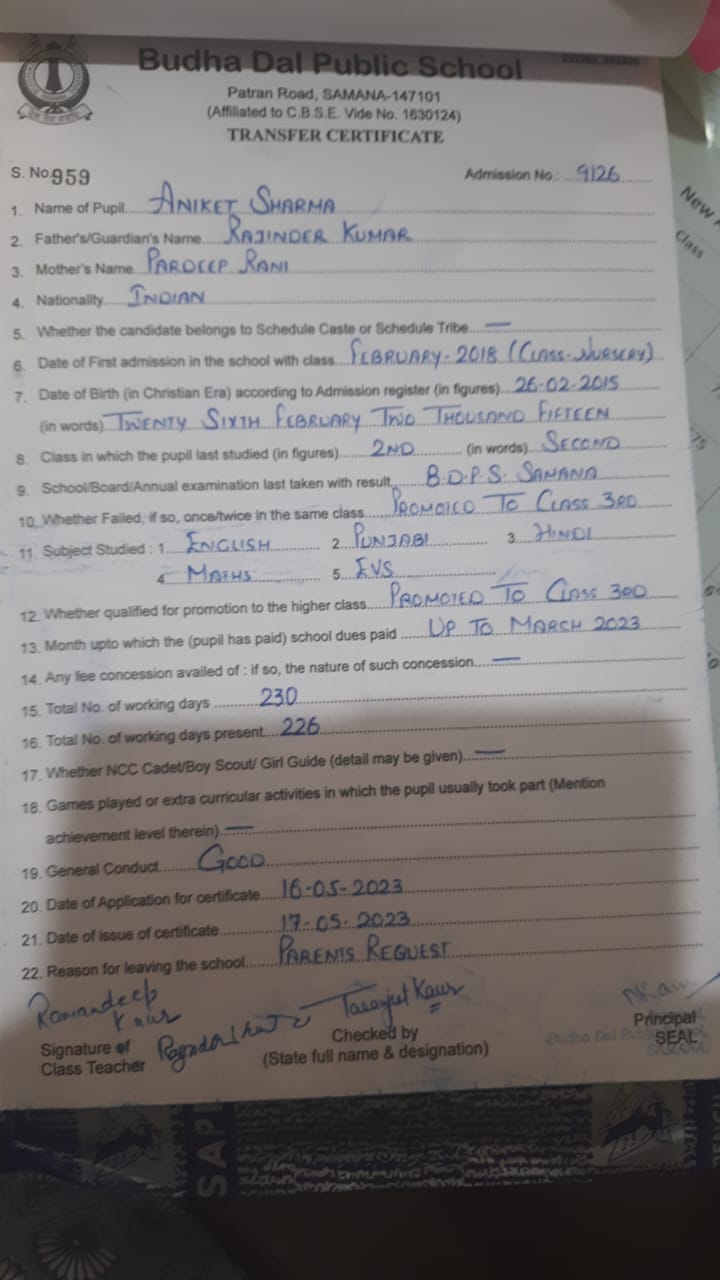 Budha Dal Public School
Patran Road, SAMANA-147101
(Affiliated to C.B.S.E. Vide No. 1630124)
TRANSFER CERTIFICATE
S. No. 959 Admission No.: 9126
1. Name of Pupil ANIKET SHARMA
2. Father's/Guardian's Name RAJINDER KUMAR
3. Mother's Name PARDEEP RANI
4. Nationality INDIAN
5. Whether the candidate belongs to Schedule Caste or Schedule Tribe —
6. Date of First admission in the school with class FEBRUARY-2018 (CLASS-NURSERY)
7. Date of Birth (in Christian Era) according to Admission register (in figures) 26-02-2015
(in words) TWENTY SIXTH FEBRUARY TWO THOUSAND FIFTEEN
8. Class in which the pupil last studied (in figures) 2ND (in words) SECOND
9. School/Board/Annual examination last taken with result B.D.P.S. SAMANA
10. Whether Failed, if so, once/twice in the same class PROMOTED TO CLASS 3RD
11. Subject Studied : 1. ENGLISH 2. PUNJABI 3. HINDI
4. MATHS 5. EVS
12. Whether qualified for promotion to the higher class PROMOTED TO CLASS 3RD
13. Month upto which the (pupil has paid) school dues paid UP TO MARCH 2023
14. Any fee concession availed of : if so, the nature of such concession —
15. Total No. of working days 230
16. Total No. of working days present 226
17. Whether NCC Cadet/Boy Scout/ Girl Guide (detail may be given) —
18. Games played or extra curricular activities in which the pupil usually took part (Mention
achievement level therein) —
19. General Conduct GOOD
20. Date of Application for certificate 16-05-2023
21. Date of issue of certificate 17-05-2023
22. Reason for leaving the school PARENTS REQUEST
Ramandeep Kaur
Taranjut Kaur
Signature of
Class Teacher
Checked by
(State full name & designation)
Principal
SEAL
Budha Dal Public
SAMANA
New
Class
SAP